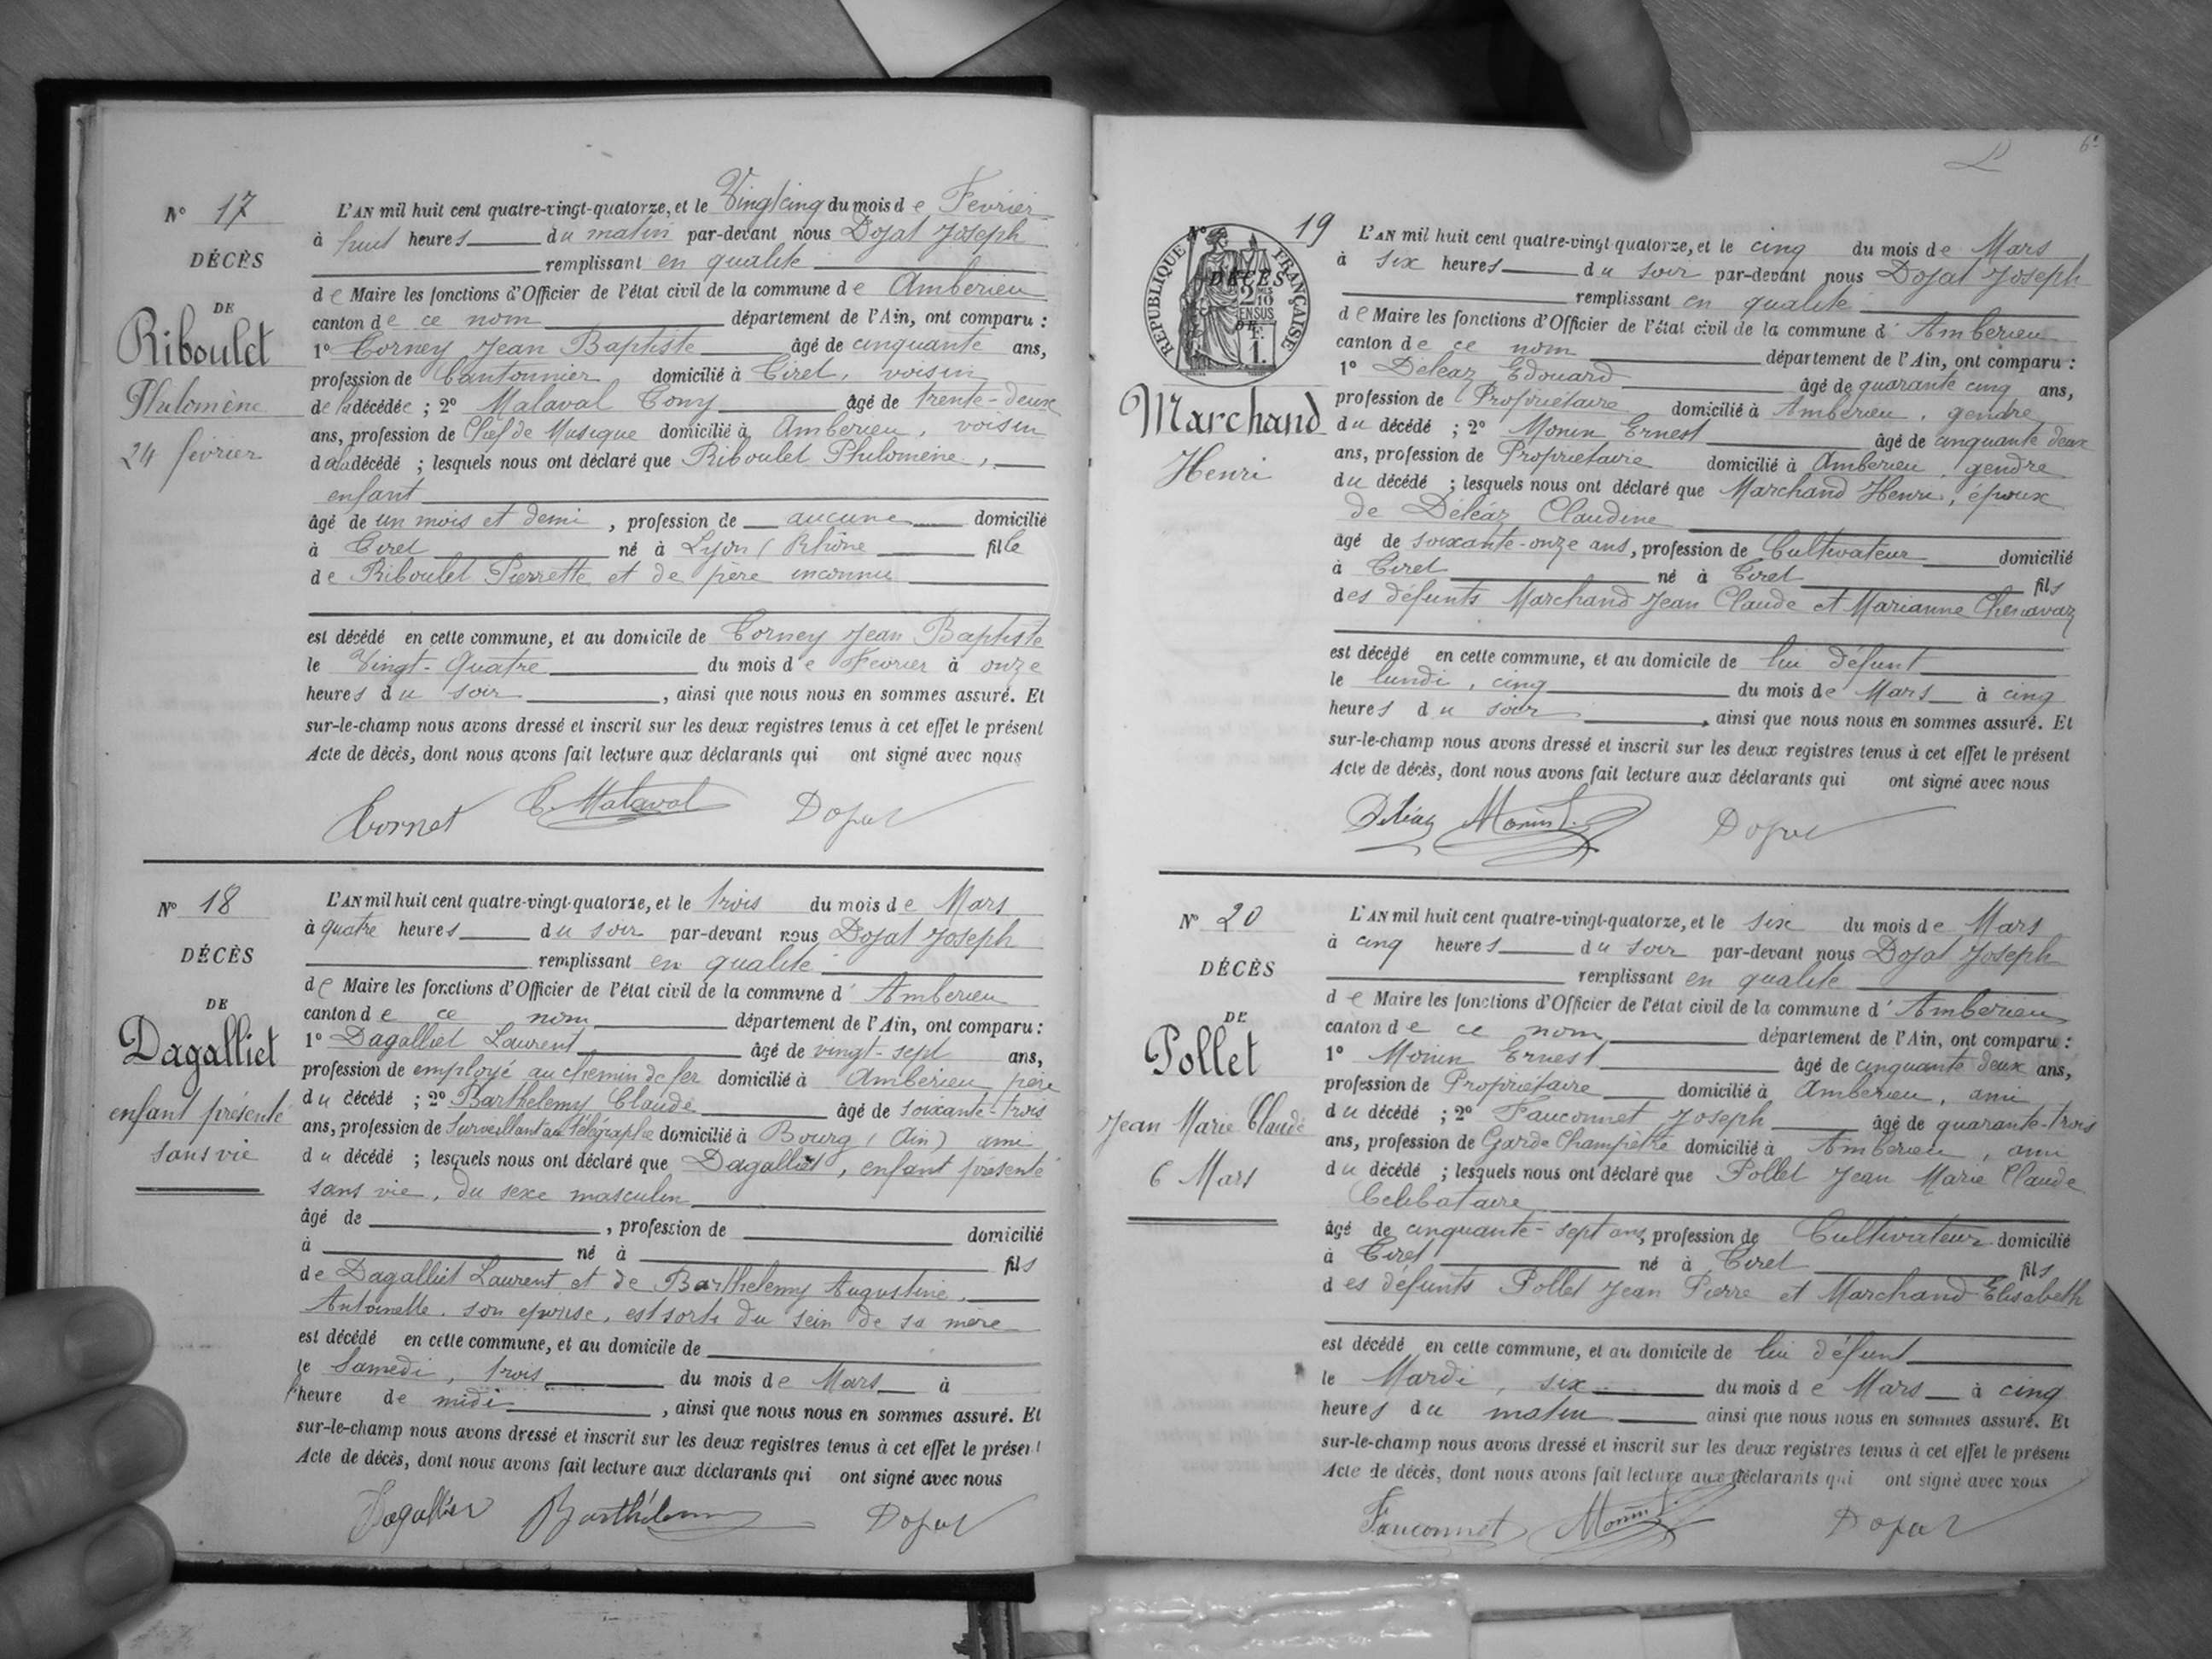 N° 17
DÉCÈS
DE
Riboulet
Philomène
24 février
L'AN mil huit cent quatre-vingt-quatorze, et le Vingt cinq du mois de Février
à huit heures du matin par-devant nous Dojat Joseph
remplissant en qualité
de Maire les fonctions d'Officier de l'état civil de la commune de Ambérieu
canton de ce nom département de l'Ain, ont comparu :
1° Corney Jean Baptiste âgé de cinquante ans,
profession de Cantonnier domicilié à Tiret, voisin
de la décédée ; 2° Malaval Tony âgé de trente-deux
ans, profession de Chef de Musique domicilié à Ambérieu, voisin
de la décédé ; lesquels nous ont déclaré que Riboulet Philomène,
enfant
âgé de un mois et demi, profession de aucune domicilié
à Tiret né à Lyon (Rhône fille
de Riboulet Pierrette et de père inconnu
est décédé en cette commune, et au domicile de Corney Jean Baptiste
le Vingt-Quatre du mois de Février à onze
heures du soir, ainsi que nous nous en sommes assuré. Et
sur-le-champ nous avons dressé et inscrit sur les deux registres tenus à cet effet le présent
Acte de décès, dont nous avons fait lecture aux déclarants qui ont signé avec nous
Cornet T. Malaval Dojat
N° 18
DÉCÈS
DE
Dagalliet
enfant présenté
sans vie
L'AN mil huit cent quatre-vingt-quatorze, et le trois du mois de Mars
à quatre heures du soir par-devant nous Dojat Joseph
remplissant en qualité
de Maire les fonctions d'Officier de l'état civil de la commune d'Ambérieu
canton de ce nom département de l'Ain, ont comparu :
1° Dagalliet Laurent âgé de vingt-sept ans,
profession de employé au chemin de fer domicilié à Ambérieu père
du décédé ; 2° Barthelemy Claude âgé de soixante-trois
ans, profession de Surveillant au télégraphe domicilié à Bourg (Ain) ami
du décédé ; lesquels nous ont déclaré que Dagalliet, enfant présenté
sans vie, du sexe masculin
âgé de , profession de domicilié
à né à fils
de Dagalliet Laurent et de Barthelemy Augustine,
Antoinette, son épouse, est sorti du sein de sa mère
est décédé en cette commune, et au domicile de
le Samedi, trois du mois de Mars à
l'heure de midi, ainsi que nous nous en sommes assuré. Et
sur-le-champ nous avons dressé et inscrit sur les deux registres tenus à cet effet le présent
Acte de décès, dont nous avons fait lecture aux déclarants qui ont signé avec nous
Dagallier Barthélemy Dojat
6e
N° 19
RÉPUBLIQUE FRANÇAISE
DÉCÈS
2 MES
10
EN SUS
DE
F.
1.
Marchand
Henri
L'AN mil huit cent quatre-vingt quatorze, et le cinq du mois de Mars
à six heures du soir par-devant nous Dojat Joseph
remplissant en qualité
de Maire les fonctions d'Officier de l'état civil de la commune d'Ambérieu
canton de ce nom département de l'Ain, ont comparu :
1° Déléaz Edouard âgé de quarante cinq ans,
profession de Propriétaire domicilié à Ambérieu, gendre
du décédé ; 2° Monin Ernest âgé de cinquante deux
ans, profession de Propriétaire domicilié à Ambérieu, gendre
du décédé ; lesquels nous ont déclaré que Marchand Henri, époux
de Déléaz Claudine
âgé de soixante-onze ans, profession de Cultivateur domicilié
à Tiret né à Tiret fils
des défunts Marchand Jean Claude et Marianne Chenavaz
est décédé en cette commune, et au domicile de lui défunt
le lundi, cinq du mois de Mars à cinq
heures du soir, ainsi que nous nous en sommes assuré. Et
sur-le-champ nous avons dressé et inscrit sur les deux registres tenus à cet effet le présent
Acte de décès, dont nous avons fait lecture aux déclarants qui ont signé avec nous
Déléaz Monin E. Dojat
N° 20
DÉCÈS
DE
Pollet
Jean Marie Claude
6 Mars
L'AN mil huit cent quatre-vingt-quatorze, et le six du mois de Mars
à cinq heures du soir par-devant nous Dojat Joseph
remplissant en qualité
de Maire les fonctions d'Officier de l'état civil de la commune d'Ambérieu
canton de ce nom, département de l'Ain, ont comparu :
1° Monin Ernest âgé de cinquante deux ans,
profession de Propriétaire domicilié à Ambérieu, ami
du décédé ; 2° Fauconnet Joseph âgé de quarante-trois
ans, profession de Garde Champêtre domicilié à Ambérieu, ami
du décédé ; lesquels nous ont déclaré que Pollet Jean Marie Claude
Célibataire
âgé de cinquante-sept ans, profession de Cultivateur domicilié
à Tiret né à Tiret fils
des défunts Pollet Jean Pierre et Marchand Elisabeth
est décédé en cette commune, et au domicile de lui défunt
le Mardi, six du mois de Mars à cinq
heures du matin ainsi que nous nous en sommes assuré. Et
sur-le-champ nous avons dressé et inscrit sur les deux registres tenus à cet effet le présent
Acte de décès, dont nous avons fait lecture aux déclarants qui ont signé avec nous
Fauconnet Monin E. Dojat